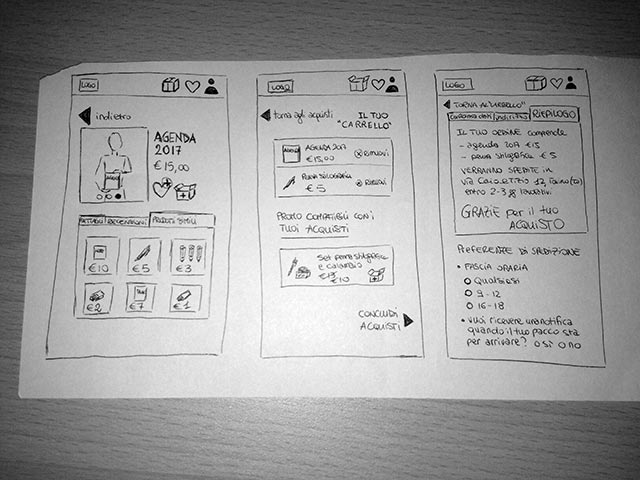 LOGO
indietro
AGENDA
2017
€ 15,00
DETTAGLI RECENSIONI PRODOTTI SIMILI
€10 €5 €3
€2 €7 €1
LOGO
torna agli acquisti
IL TUO
"CARRELLO"
AGENDA 2017
€15,00
RIMUOVI
PENNA STILOGRAFICA
€ 5
RIMUOVI
PROMO COMPATIBILI CON I
TUOI ACQUISTI
Set penna stilografica
e calamaio
€10
CONCLUDI
ACQUISTI
LOGO
TORNA AL "CARRELLO"
INDIRIZZO RIEPILOGO
IL TUO ORDINE comprende
- agenda 2017 €15
- penna stilografica € 5
VERRANNO SPEDITE IN
entro 2-3 gg lavorativi
GRAZIE per il tuo
ACQUISTO
PREFERENZE DI SPEDIZIONE
• FASCIA ORARIA
Qualsiasi
9-12
16-18
• vuoi ricevere una notifica
quando il tuo pacco sta
per arrivare? o si o no